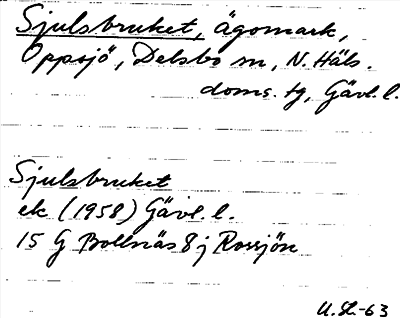 Sjulsbruket, ägomark,
Oppsjö, Delsbo sn, N. Häls.
doms. tg, Gävl. l.
Sjulsbruket
ek (1958) Gävl. l.
15 G Bollnäs 8 j Rossjön